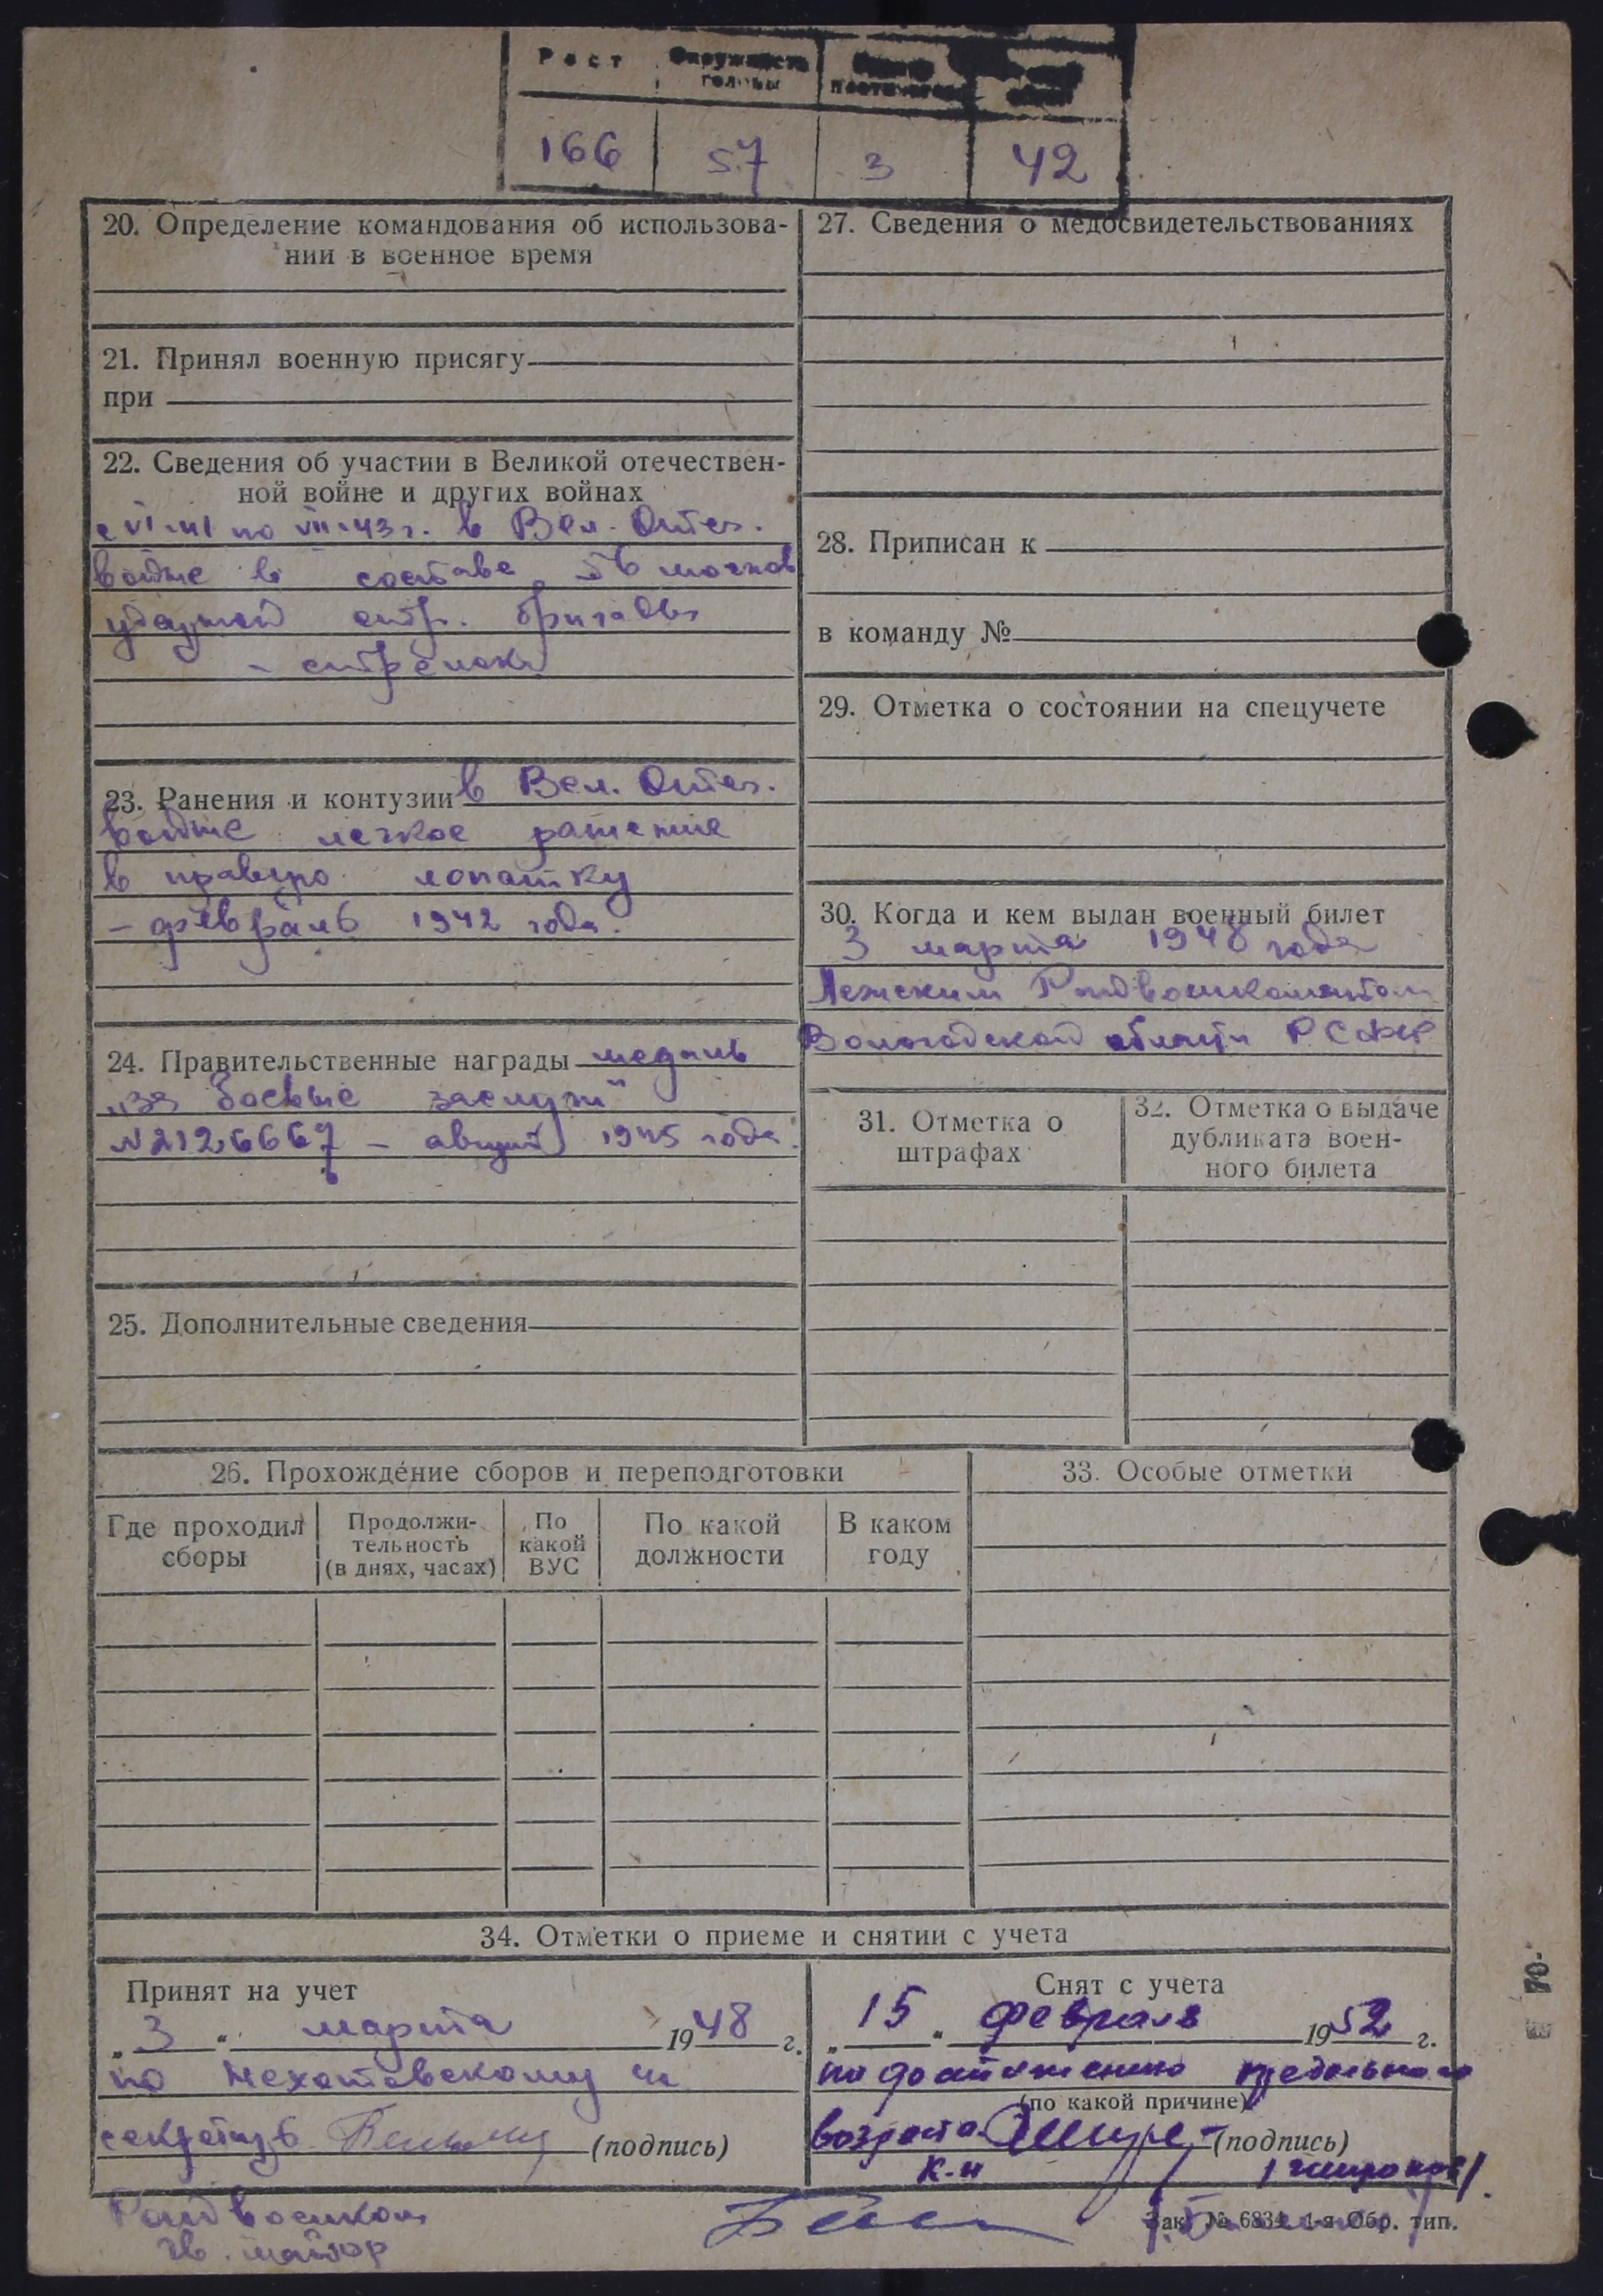 Рост Окружность головы
166 57 3 42
20. Определение командования об использова-
нии в военное время
21. Принял военную присягу
при
22. Сведения об участии в Великой отечествен-
ной войне и других войнах
с VI-41 по VII-43 г. в Вел. Отеч.
войне в составе
ударной стр. бригады
- стрелок
23. Ранения и контузии в Вел. Отеч.
войне легкое ранение
в правую лопатку
- февраль 1942 года.
24. Правительственные награды медаль
"за боевые заслуги"
№2126667 - август 1945 года.
25. Дополнительные сведения
26. Прохождение сборов и переподготовки
Где проходил сборы
Продолжи-
тельность
(в днях, часах)
По какой ВУС
По какой должности
В каком году
27. Сведения о медосвидетельствованиях
28. Приписан к
в команду №
29. Отметка о состоянии на спецучете
30. Когда и кем выдан военный билет
3 марта 1948 года
Лежским Райвоенкоматом
Вологодской области РСФСР
31. Отметка о
штрафах
32. Отметка о выдаче
дубликата воен-
ного билета
33. Особые отметки
34. Отметки о приеме и снятии с учета
Принят на учет
„3" марта 1948 г.
по
секретарь (подпись)
Райвоенком
гв. майор
Снят с учета
„15" февраля 1952 г.
по достижению предельного
(по какой причине)
возраста (подпись)
к-н
Зак. № 6834 1-я Обр. тип.
70-